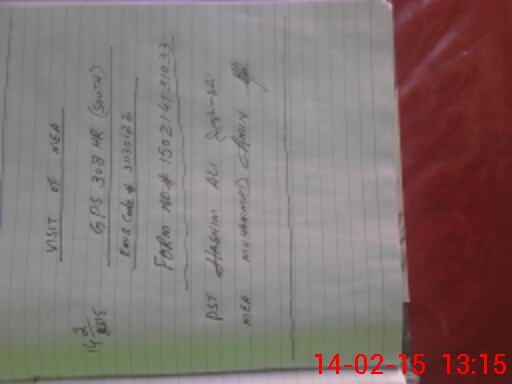 VISIT OF MEA
14/2/2015
GPS 308 HR (SOUTH)
EMIS Code # 31130122
FORM NO # 150214131033
PST HASHIM ALI
MEA MUHAMMAD AMIN
14-02-15 13:15